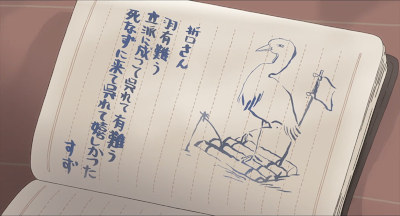 折口さん
羽有難う
立派に成って呉れて有難う
死なずに来て呉れて嬉しかった
すず